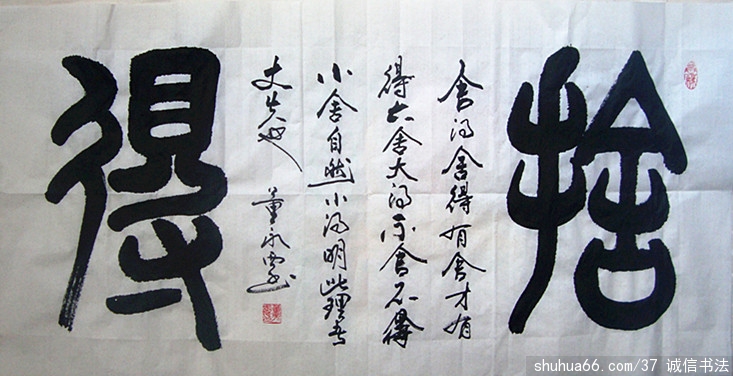 捨
舍得舍得有舍才有
得大舍大得不舍不得
小舍自然小得明此理者
丈夫也
董永
得
shuhua66.com/37 诚信书法